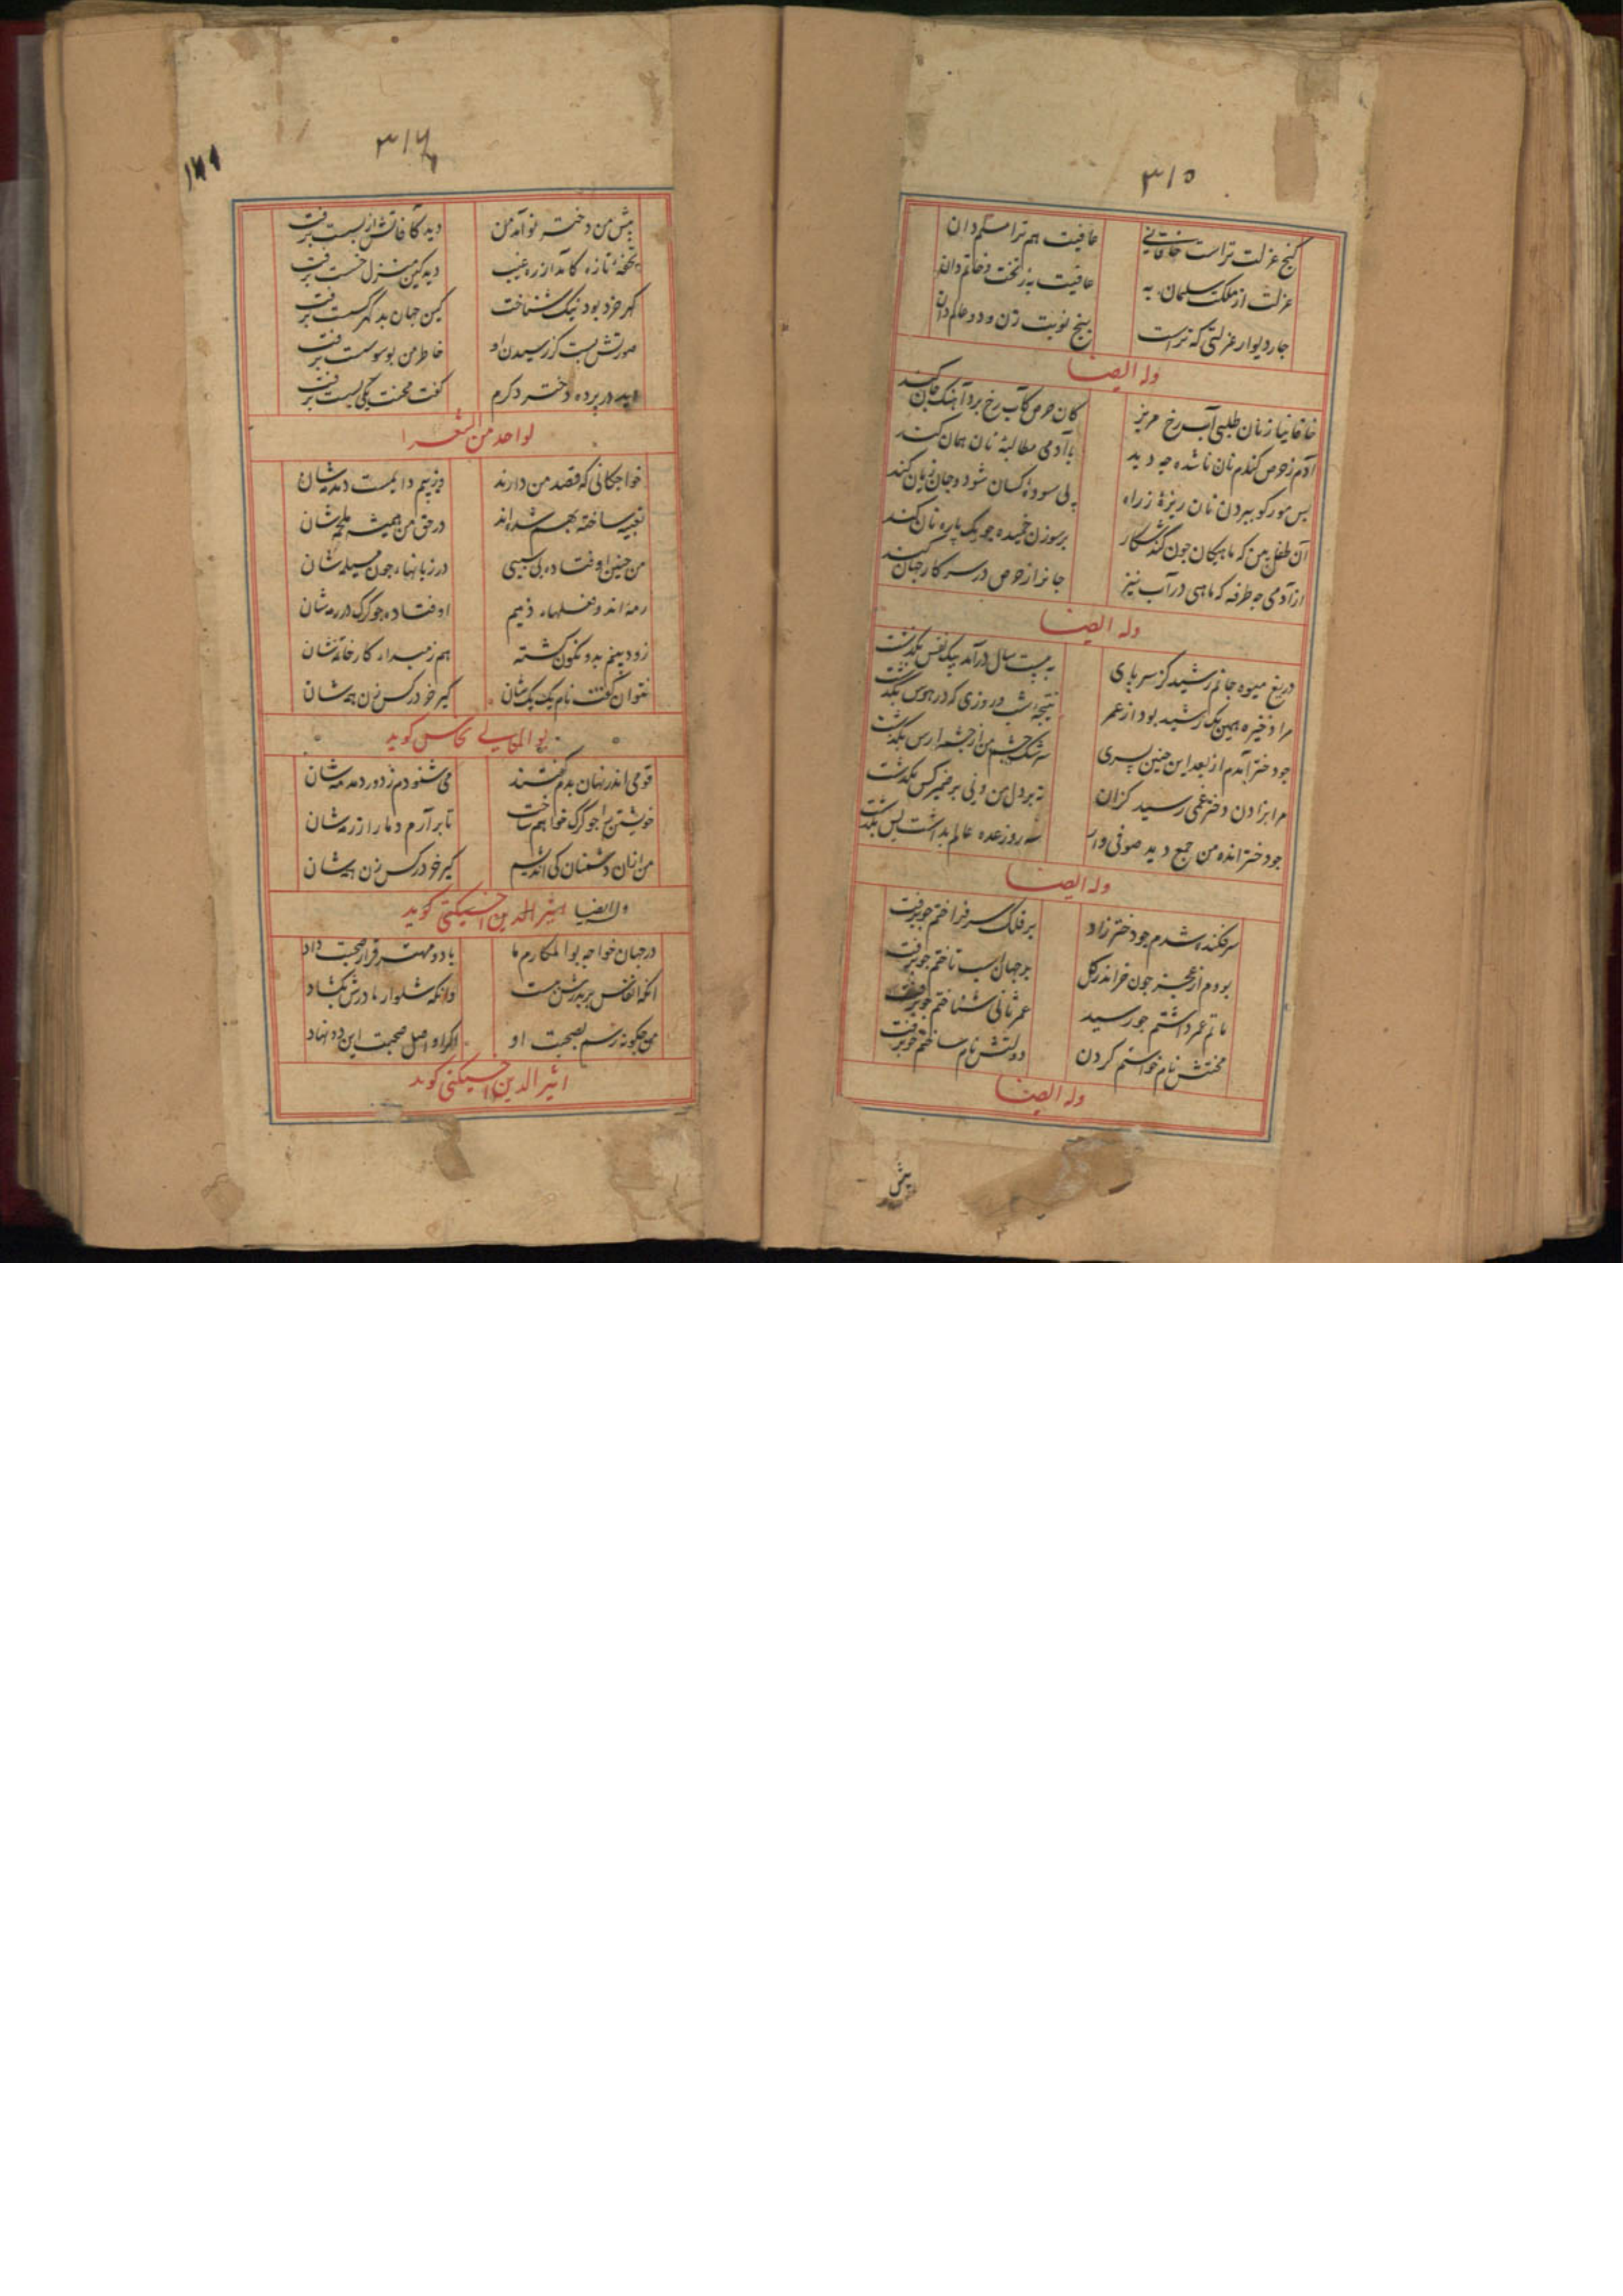 ۳۱۵
کنج عزلت تراست خاقانی عافیت هم ترا مسلم دان
عزلت از ملکت سلیمان به عافیت به ز تخت و خاتم دان
چاردیوار عزلتی که تراست پنج نوبت زن و دو عالم دان
وله ایضا
خاقانیا ز نان طلبی آب رخ مریز کان حرص کآب رخ برد آهنگ جان کند
آدم ز حرص گندم نان ناشده چه دید با آدمی مطالبه نان همان کند
بس مور کو ببردن نان ریزهٔ ز راه پی سودهٔ کسان شود و جان زیان کند
آن طفل بین که ماهیکان چون کند شکار بر سوزن خمیده چو یک پاره نان کند
از آدمی چه طرفه که ماهی در آب نیز جانرا ز حرص در سر کار جهان کند
وله ایضا
دریغ میوه جانم رشید کز سر پای به بیست سال درآمد بیک نفس بگذشت
مرا ذخیره همین یک رشید بود از عمر نتیجه شب و روزی که در هوس بگذشت
چو دختر آمدم از بعد این چنین پسری سرشک چشم من از چشمه ارس بگذشت
مرا بزادن دختر غمی رسید کزان نه بر دل من و نی بر ضمیر کس بگذشت
چو دختر انده من جمع دید صوفی وار سه روز عده عالم بداشت پس بگذشت
وله ایضا
سرفکنده شدم چو دختر زاد بر فلک سر فراختم چو برفت
بودم از عجز چون خر اندر گل بر جهان اسب تاختم چو برفت
ماتم عمر داشتم چو رسید عمر ثانی شناختم چو برفت
محنتش نام خواستم کردن دولتش نام ساختم چو برفت
وله ایضا
پیش
۳۱۶
پیش من دختر نو آمد من دید کآفاتش از پسست برفت
تحفهٔ تازه کامد از ره غیب دید کین منزل خسست برفت
گهر خرد بود نیک شناخت کین جهان بد گهر کسست برفت
صورتش بست کز رسیدن او خاطر من بوسوسست برفت
دید در پرده دختر دگرم گفت محنت یکی بسست برفت
لواحد من الشعرا
خواجگانی که قصد من دارند
من چنین اوفتاده بی سببی در زبانها چون
رمه اند و اوفتاده چو گرگ در رمه شان
زود بینم بدو نگون گشته
نتوان گفت نام یک یک شان کیر خر در کس زن همه شان
بو المعالی نحاس گوید
قومی اندر نهان بدم گفتند می شنودم ز دور دمدمه شان
خویشتن را چو گرگ خواهم ساخت تا برآرم دمار از رمه شان
من از آن دشمنان کی اندیشم کیر خر در کس زن همه شان
وله ایضا اثیر الدین اخسیکتی گوید
در جهان خواجه بوالمکارم ما با دو مهتر قرار صحبت داد
آنکه انفاس بر پدرش ببست وانکه شلوار مادرش بگشاد
من چگونه رسم بصحبت او اگر او اصل صحبت این دو نهاد
اثیر الدین اخسیکتی گوید